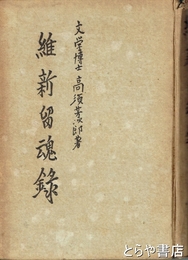 文学博士 高須芳次郎著
維新留魂錄
とらや書店